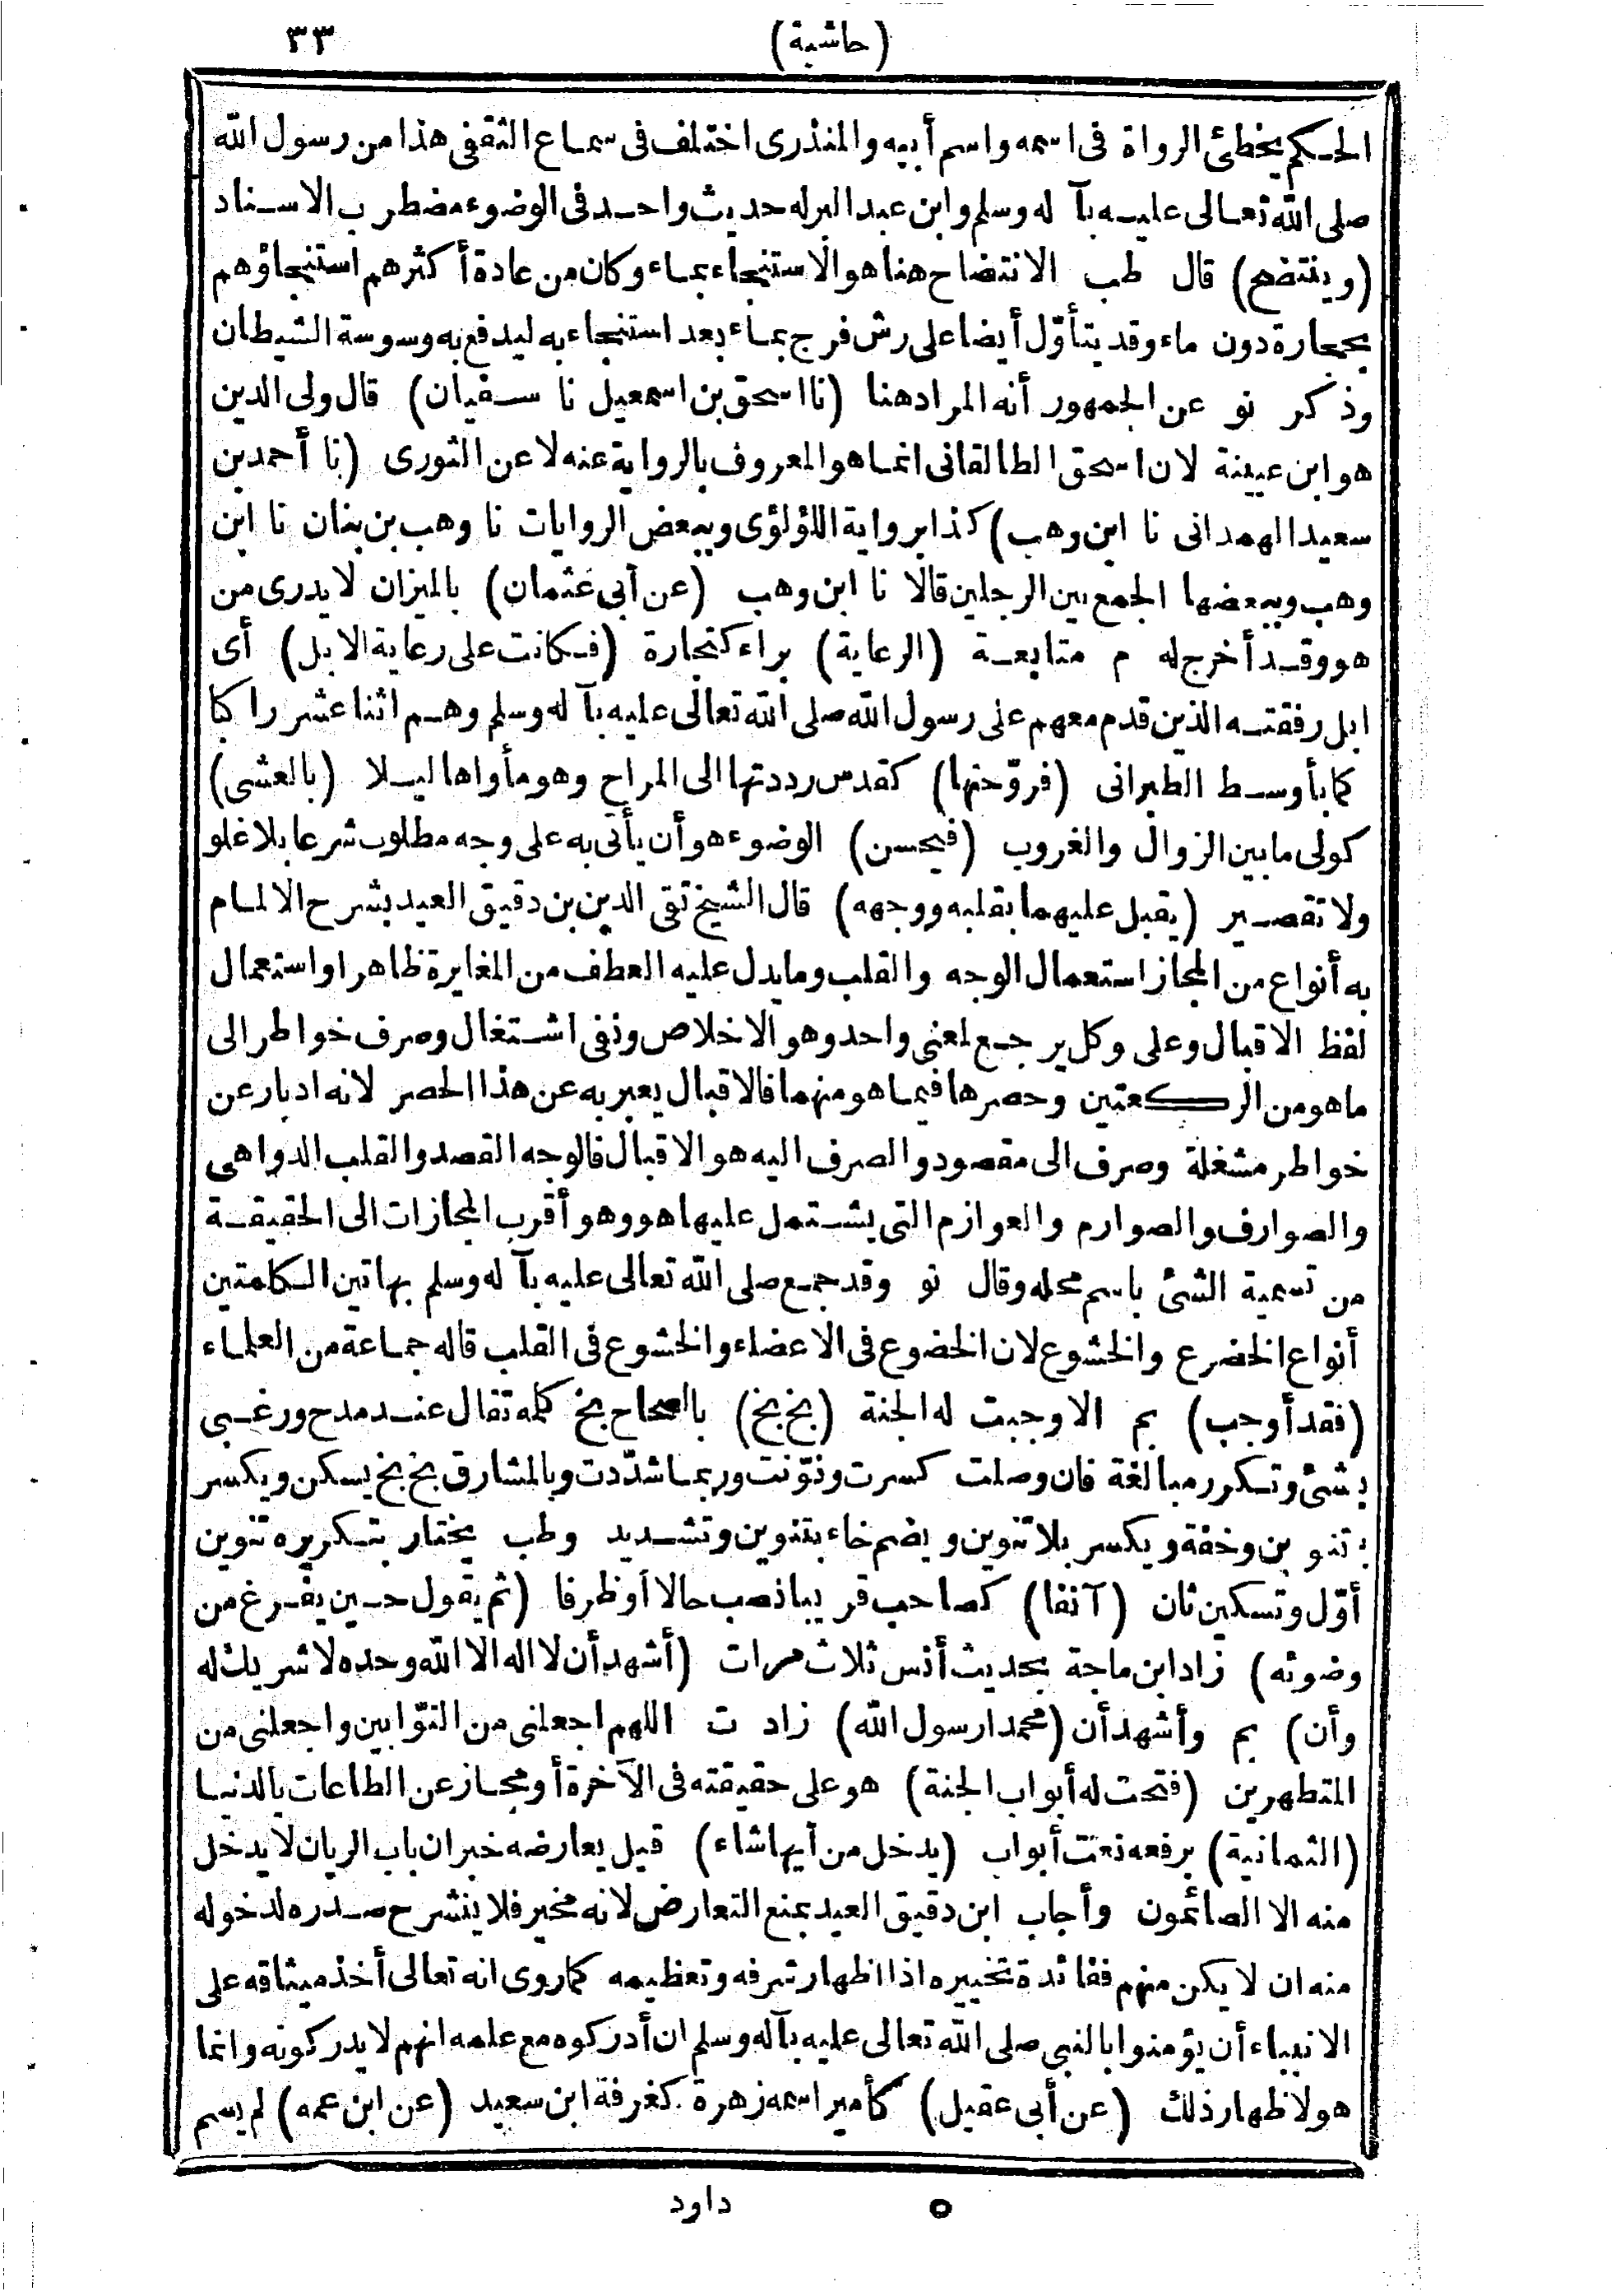 (حاشية) ٣٣
الحكم يخطئ الرواة فى اسمه واسم أبيه والمنذرى اختلف فى سماع الثقفى هذا من رسول الله
صلى الله تعالى عليه بآ له وسلم وابن عبد البر له حديث واحد فى الوضوء مضطرب الاسناد
(وينتضح) قال طب الانتضاح هنا هو الاستنجاء بماء وكان من عادة أكثرهم استنجاؤهم
بحجارة دون ماء وقد يتأوّل أيضا على رش فرج بماء بعد استنجاء به ليدفع به وسوسة الشيطان
وذكر نو عن الجمهور أنه المراد هنا (نا اسحق بن اسمعيل نا سفيان) قال ولى الدين
هو ابن عيينة لان اسحق الطالقانى انما هو المعروف بالرواية عنه لا عن الثورى (نا أحمد بن
سعيد الهمدانى نا ابن وهب) كذا برواية اللؤلؤى وببعض الروايات نا وهب بن بنان نا ابن
وهب وببعضها الجمع بين الرجلين قالا نا ابن وهب (عن أبى عثمان) بالميزان لا يدرى من
هو وقد أخرج له م متابعة (الرعاية) براء كتجارة (فكانت على رعاية الابل) أى
ابل رفقته الذين قدم معهم على رسول الله صلى الله تعالى عليه بآ له وسلم وهم اثنا عشر راكبا
كما بأوسط الطبرانى (فروّحتها) كقدس رددتها الى المراح وهو مأواها ليلا (بالعشى)
كولى ما بين الزوال والغروب (فيحسن) الوضوء هو أن يأتى به على وجه مطلوب شرعا بلا غلو
ولا تقصير (يقبل عليهما بقلبه ووجهه) قال الشيخ تقى الدين بن دقيق العيد بشرح الالمام
به أنواع من المجاز استعمال الوجه والقلب وما يدل عليه العطف من المغايرة ظاهرا واستعمال
لفظ الاقبال وعلى وكل يرجع لمعنى واحد وهو الاخلاص ونفى اشتغال وصرف خواطر الى
ما هو من الركعتين وحصرها فيما هو منهما فالاقبال يعبر به عن هذا الحصر لانه ادبار عن
خواطر مشغلة وصرف الى مقصود والصرف اليه هو الاقبال فالوجه القصد والقلب الدواهى
والصوارف والصوارم والعوازم التى يشتمل عليها هو وهو أقرب المجازات الى الحقيقة
من تسمية الشئ باسم محله وقال نو وقد جمع صلى الله تعالى عليه بآ له وسلم بهاتين الكلمتين
أنواع الخضرع والخشوع لان الخضوع فى الاعضاء والخشوع فى القلب قاله جماعة من العلماء
(فقد أوجب) بم الا وجبت له الجنة (بخ بخ) بالصحاح بخ كلمة تقال عند مدح ورغبى
بشئ وتكرر مبالغة فان وصلت كسرت ونوّنت وربما شدّدت وبالمشارق بخ بخ يسكن ويكسر
بتنوين وخفة ويكسر بلا تنوين ويضم خاء بتنوين وتشديد وطب يختار بتكريره تنوين
أوّل وتسكين ثان (آنفا) كصاحب قريبا نصب حالا أو ظرفا (ثم يقول حين يفرغ من
وضوئه) زاد ابن ماجة بحديث أنس ثلاث مرات (أشهد أن لا اله الا الله وحده لا شريك له
وأن) بم وأشهد أن (محمدا رسول الله) زاد ت اللهم اجعلنى من التوّابين واجعلنى من
المتطهرين (فتحت له أبواب الجنة) هو على حقيقته فى الآخرة أو مجاز عن الطاعات بالدنيا
(الثمانية) برفعه نعت أبواب (يدخل من أيها شاء) قيل يعارضه خبر ان باب الريان لا يدخل
منه الا الصائمون وأجاب ابن دقيق العيد بمنع التعارض لانه مخير فلا ينشرح صدره لدخوله
منه ان لا يكن منهم ففائدة تخييره اذا اظهار شرفه وتعظيمه كما روى انه تعالى أخذ ميثاقه على
الانبياء أن يؤمنوا بالنبى صلى الله تعالى عليه بآله وسلم ان أدركوه مع علمه انهم لا يدركونه وانما
هو لاظهار ذلك (عن أبى عقيل) كأمير اسمه زهرة كغرفة ابن سعيد (عن ابن عمه) لم يسم
٥ داود